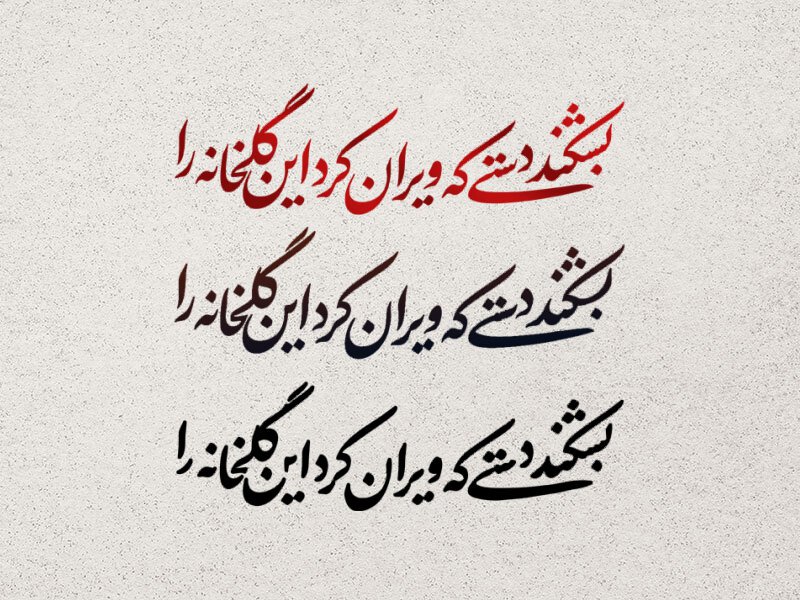 بشکند دستی که ویران کرد این گلخانه را
بشکند دستی که ویران کرد این گلخانه را
بشکند دستی که ویران کرد این گلخانه را